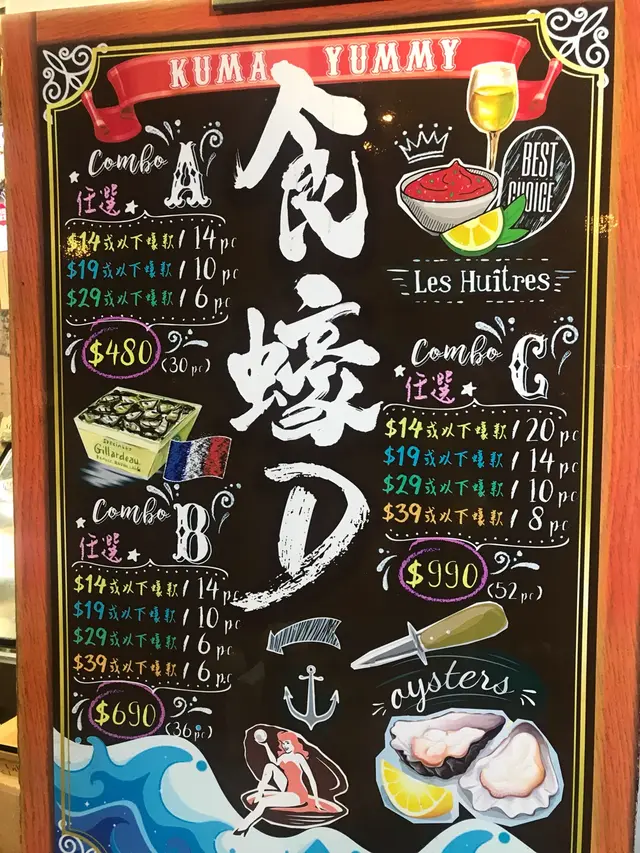 KUMA YUMMY
食蠔D
Combo A
任選
$14或以下蠔款 / 14 pc
$19或以下蠔款 / 10 pc
$29或以下蠔款 / 6 pc
$480 (30 pc)
Gillardeau
Combo B
任選
$14或以下蠔款 / 14 pc
$19或以下蠔款 / 10 pc
$29或以下蠔款 / 6 pc
$39或以下蠔款 / 6 pc
$690 (36 pc)
BEST
CHOICE
Les Huîtres
Combo C
任選
$14或以下蠔款 / 20 pc
$19或以下蠔款 / 14 pc
$29或以下蠔款 / 10 pc
$39或以下蠔款 / 8 pc
$990 (52 pc)
oysters